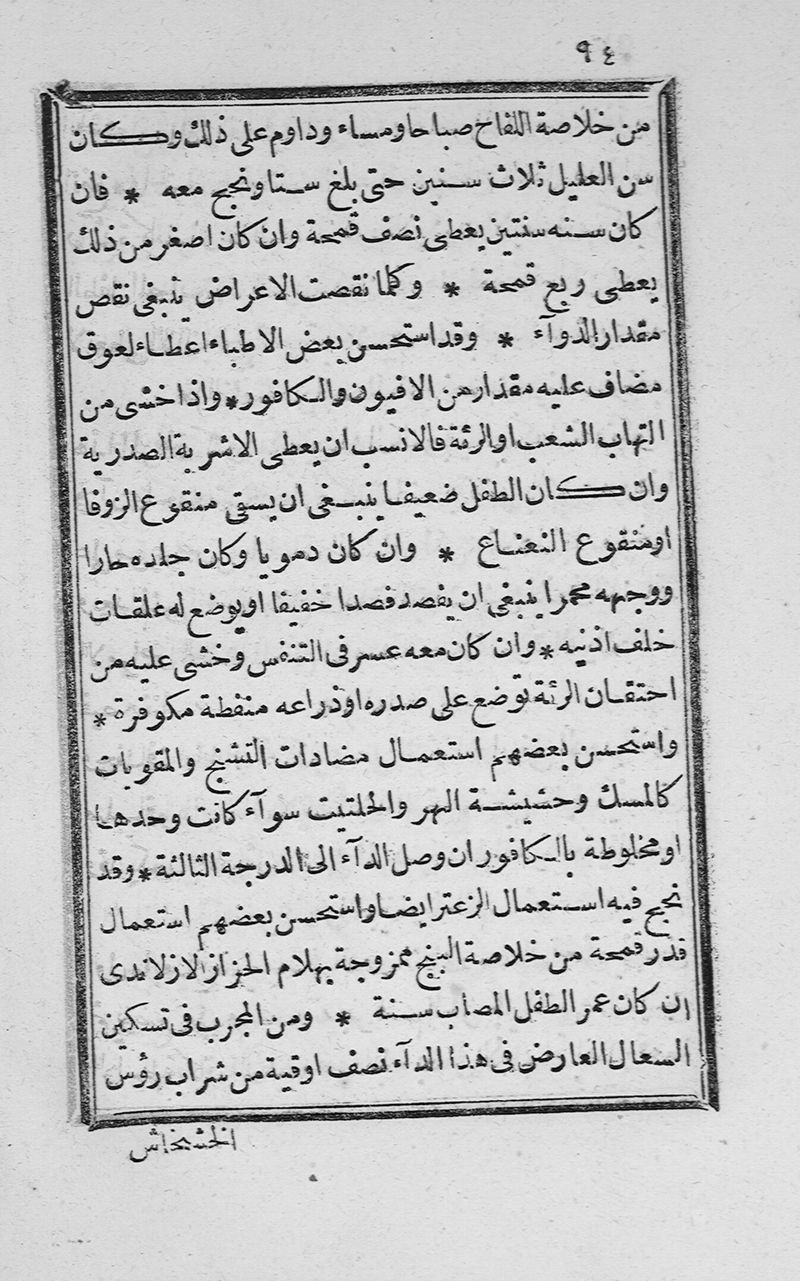 ٩٤
من خلاصة اللفاح صباحا ومساء وداوم على ذلك وكان
سن العليل ثلاث سنين حتى بلغ ستا ونجح معه * فان
كان سنه سنتين يعطى نصف قمحة وان كان اصغر من ذلك
يعطى ربع قمحة * وكلما نقصت الاعراض ينبغى نقص
مقدار الدوآء * وقد استحسن بعض الاطباء اعطاء لعوق
مضاف عليه مقدار من الافيون والكافور * واذا خشى من
التهاب الشعب او الرئة فالانسب ان يعطى الاشربة الصدرية
وان كان الطفل ضعيفا ينبغى ان يسقى منقوع الزوفا
او منقوع النعناع * وان كان دمويا وكان جلده حارا
ووجهه محمرا ينبغى ان يفصد فصدا خفيفا او يوضع له علقات
خلف اذنيه * وان كان معه عسر فى التنفس وخشى عليه من
احتقان الرئة توضع على صدره او ذراعه منفطة مكوفرة *
واستحسن بعضهم استعمال مضادات التشنج والمقويات
كالمسك وحشيشة الهر والحلتيت سوآء كانت وحدها
او مخلوطة بالكافور ان وصل الدآء الى الدرجة الثالثة * وقد
نجح فيه استعمال الزعتر ايضا واستحسن بعضهم استعمال
قدر قمحة من خلاصة البنج ممزوجة بهلام الحزاز الازلاندى
ان كان عمر الطفل المصاب سنة * ومن المجرب فى تسكين
السعال العارض فى هذا الدآء نصف اوقية من شراب رؤس
الخشخاش